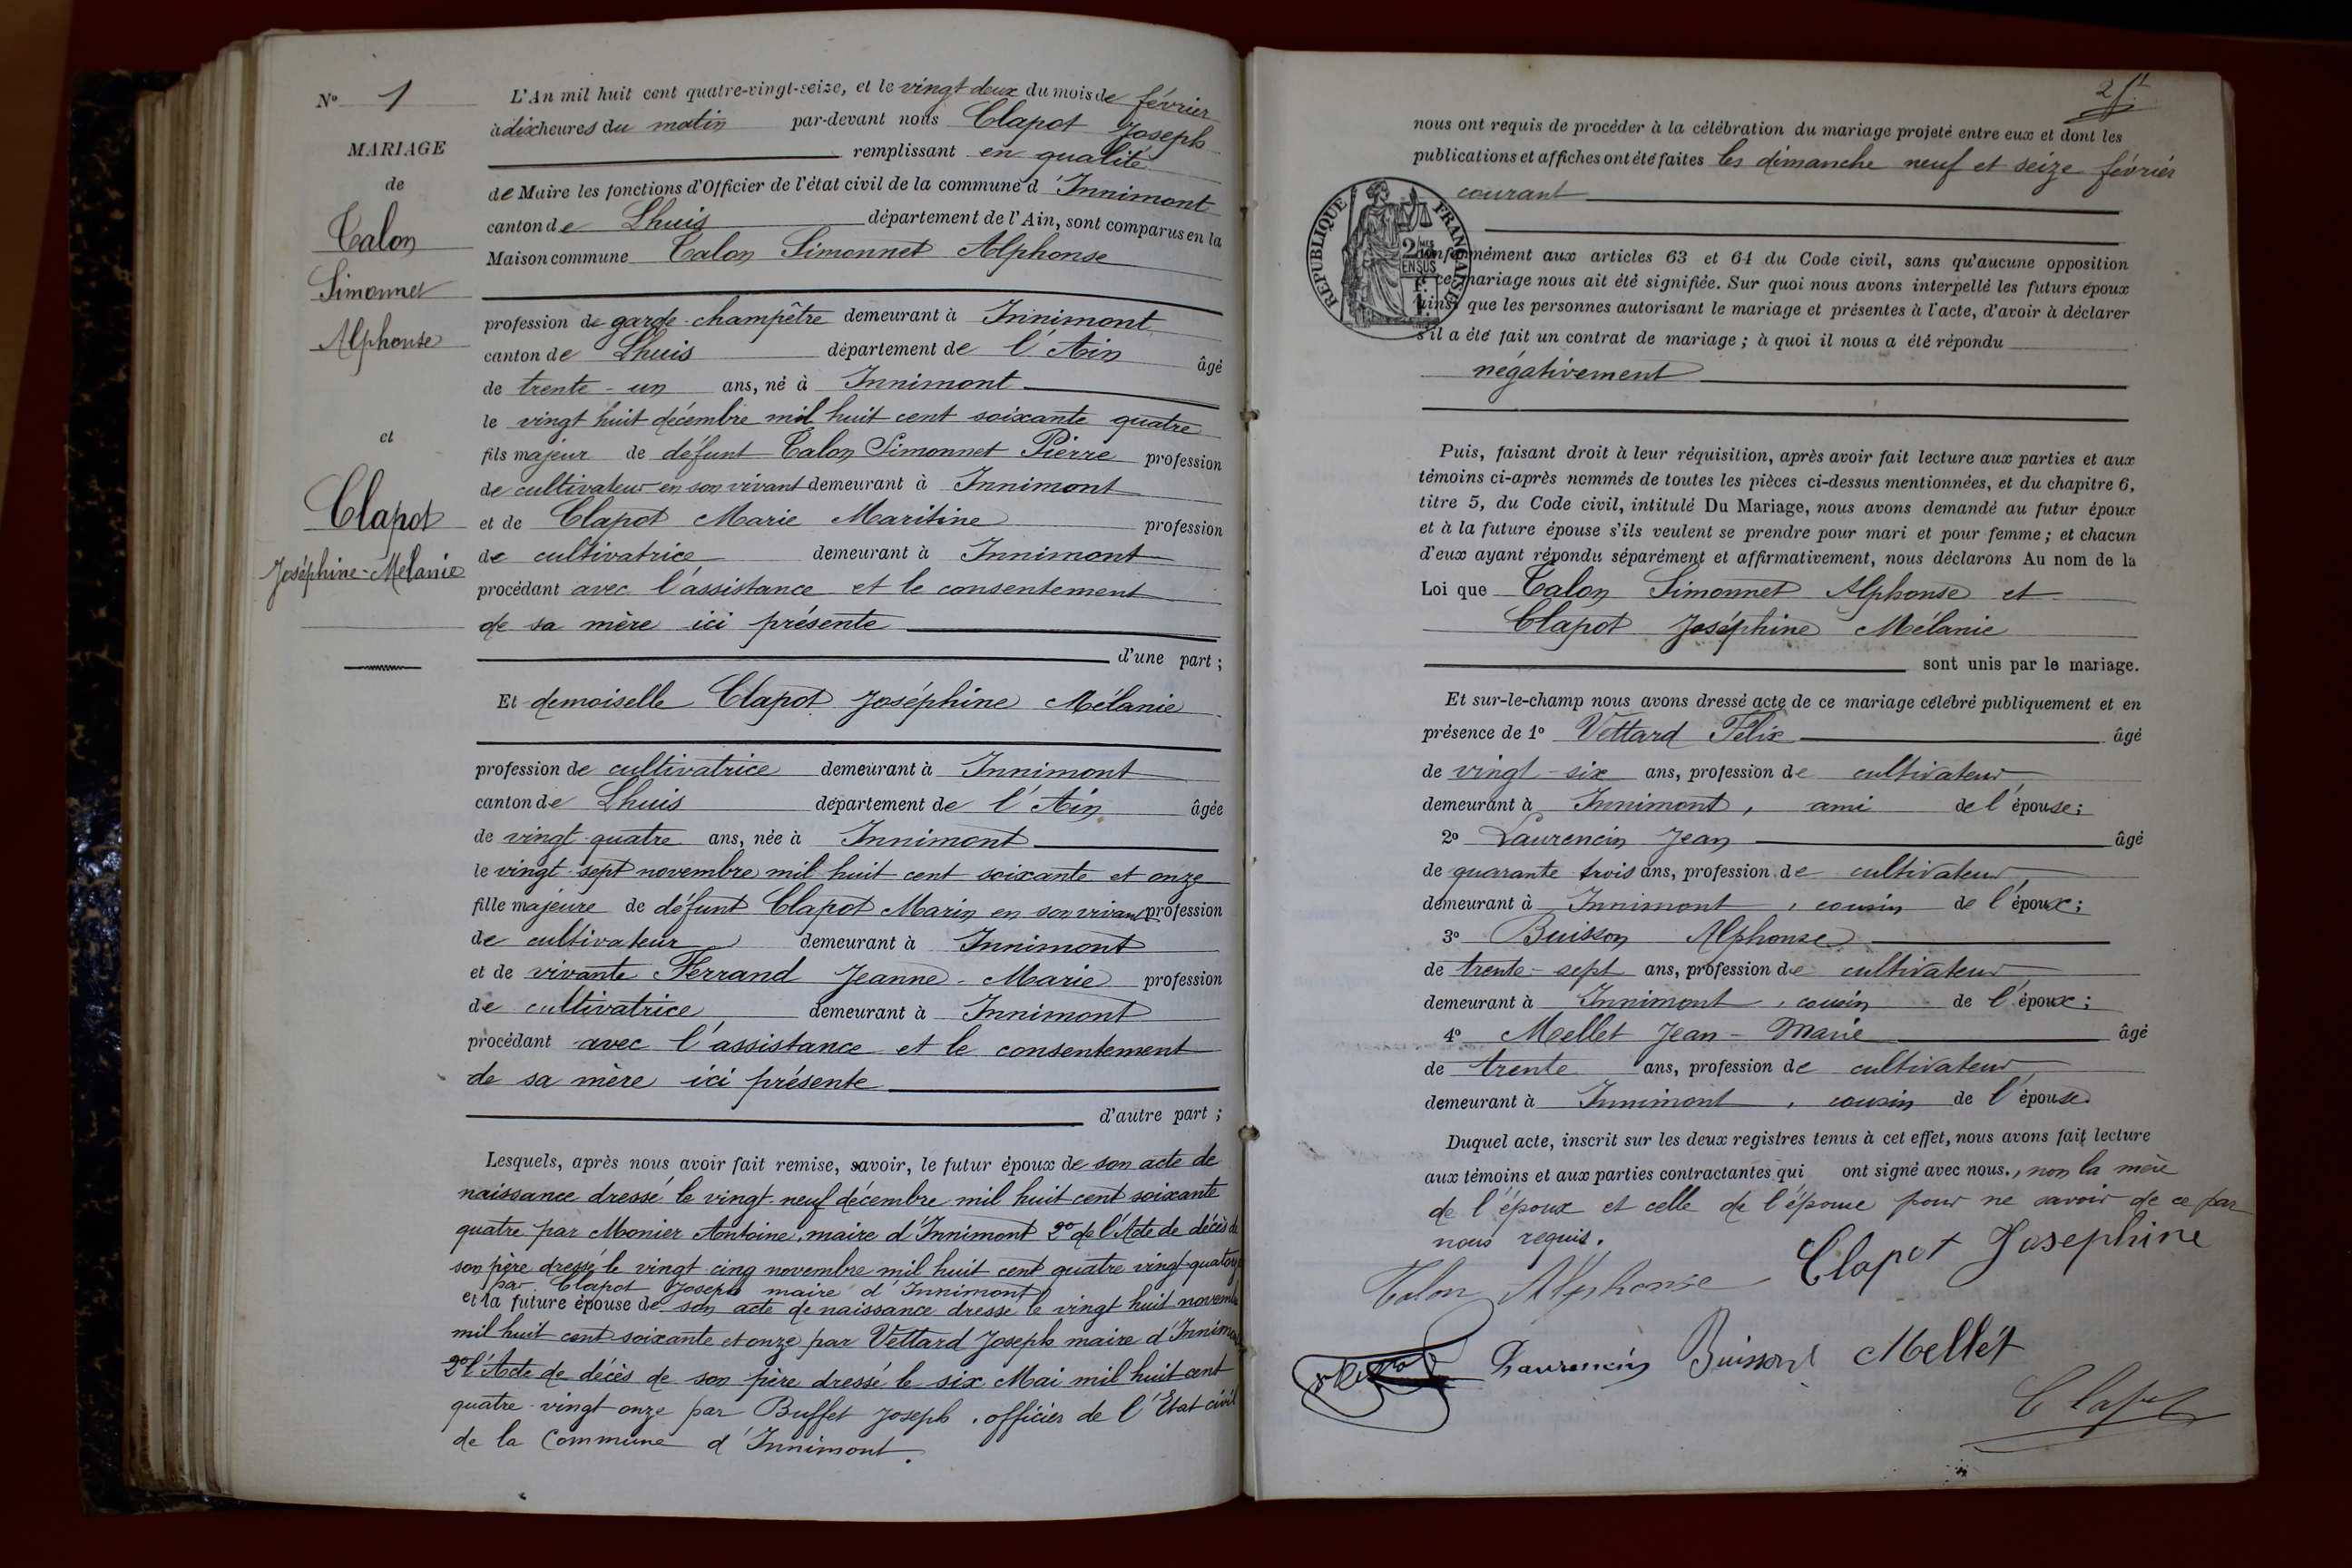 N° 1
MARIAGE
de
Talon
Simonnet
Alphonse
et
Clapot
Joséphine-Mélanie
L'An mil huit cent quatre-vingt-seize, et le vingt deux du mois de février
à dix heures du matin par-devant nous Clapot Joseph
remplissant en qualité
de Maire les fonctions d'Officier de l'état civil de la commune d'Innimont
canton de Lhuis département de l'Ain, sont comparus en la
Maison commune Talon Simonnet Alphonse
profession de garde-champêtre demeurant à Innimont
canton de Lhuis département de l'Ain âgé
de trente-un ans, né à Innimont
le vingt huit décembre mil huit cent soixante quatre
fils majeur de défunt Talon Simonnet Pierre profession
de cultivateur en son vivant demeurant à Innimont
et de Clapot Marie Maritine profession
de cultivatrice demeurant à Innimont
procédant avec l'assistance et le consentement
de sa mère ici présente
d'une part;
Et demoiselle Clapot Joséphine Mélanie
profession de cultivatrice demeurant à Innimont
canton de Lhuis département de l'Ain âgée
de vingt-quatre ans, née à Innimont
le vingt-sept novembre mil huit cent soixante et onze
fille majeure de défunt Clapot Marin en son vivant profession
de cultivateur demeurant à Innimont
et de vivante Ferrand Jeanne-Marie profession
de cultivatrice demeurant à Innimont
procédant avec l'assistance et le consentement
de sa mère ici présente
d'autre part;
Lesquels, après nous avoir fait remise, savoir, le futur époux de son acte de
naissance dressé le vingt-neuf décembre mil huit cent soixante
quatre par Monier Antoine, maire d'Innimont 2° de l'Acte de décès de
son père dressé le vingt-cinq novembre mil huit cent quatre vingt-quatorze
par Clapot Joseph maire d'Innimont
et la future épouse de son acte de naissance dressé le vingt huit novembre
mil huit cent soixante et onze par Vettard Joseph maire d'Innimont
2° l'Acte de décès de son père dressé le six Mai mil huit cent
quatre-vingt onze par Buffet Joseph, officier de l'Etat civil
de la Commune d'Innimont.
nous ont requis de procéder à la célébration du mariage projeté entre eux et dont les
publications et affiches ont été faites les dimanche neuf et seize février
courant
RÉPUBLIQUE FRANÇAISE
2/10MES
EN SUS
conformément aux articles 63 et 64 du Code civil, sans qu'aucune opposition
à ce mariage nous ait été signifiée. Sur quoi nous avons interpellé les futurs époux
ainsi que les personnes autorisant le mariage et présentes à l'acte, d'avoir à déclarer
s'il a été fait un contrat de mariage; à quoi il nous a été répondu
négativement
Puis, faisant droit à leur réquisition, après avoir fait lecture aux parties et aux
témoins ci-après nommés de toutes les pièces ci-dessus mentionnées, et du chapitre 6,
titre 5, du Code civil, intitulé Du Mariage, nous avons demandé au futur époux
et à la future épouse s'ils veulent se prendre pour mari et pour femme; et chacun
d'eux ayant répondu séparément et affirmativement, nous déclarons Au nom de la
Loi que Talon Simonnet Alphonse et
Clapot Joséphine Mélanie
sont unis par le mariage.
Et sur-le-champ nous avons dressé acte de ce mariage célébré publiquement et en
présence de 1° Vettard Félix âgé
de vingt-six ans, profession de cultivateur
demeurant à Innimont, ami de l'épouse;
2° Laurencin Jean âgé
de quarante trois ans, profession de cultivateur
demeurant à Innimont, cousin de l'époux;
3° Buisson Alphonse
de trente-sept ans, profession de cultivateur
demeurant à Innimont, cousin de l'époux;
4° Mellet Jean-Marie âgé
de trente ans, profession de cultivateur
demeurant à Innimont, cousin de l'épouse
Duquel acte, inscrit sur les deux registres tenus à cet effet, nous avons fait lecture
aux témoins et aux parties contractantes qui ont signé avec nous., non la mère
de l'époux et celle de l'épouse pour ne savoir de ce par
nous requis.
Talon Alphonse Clapot Josephine
Laurencin Buisson Mellet
Clapot